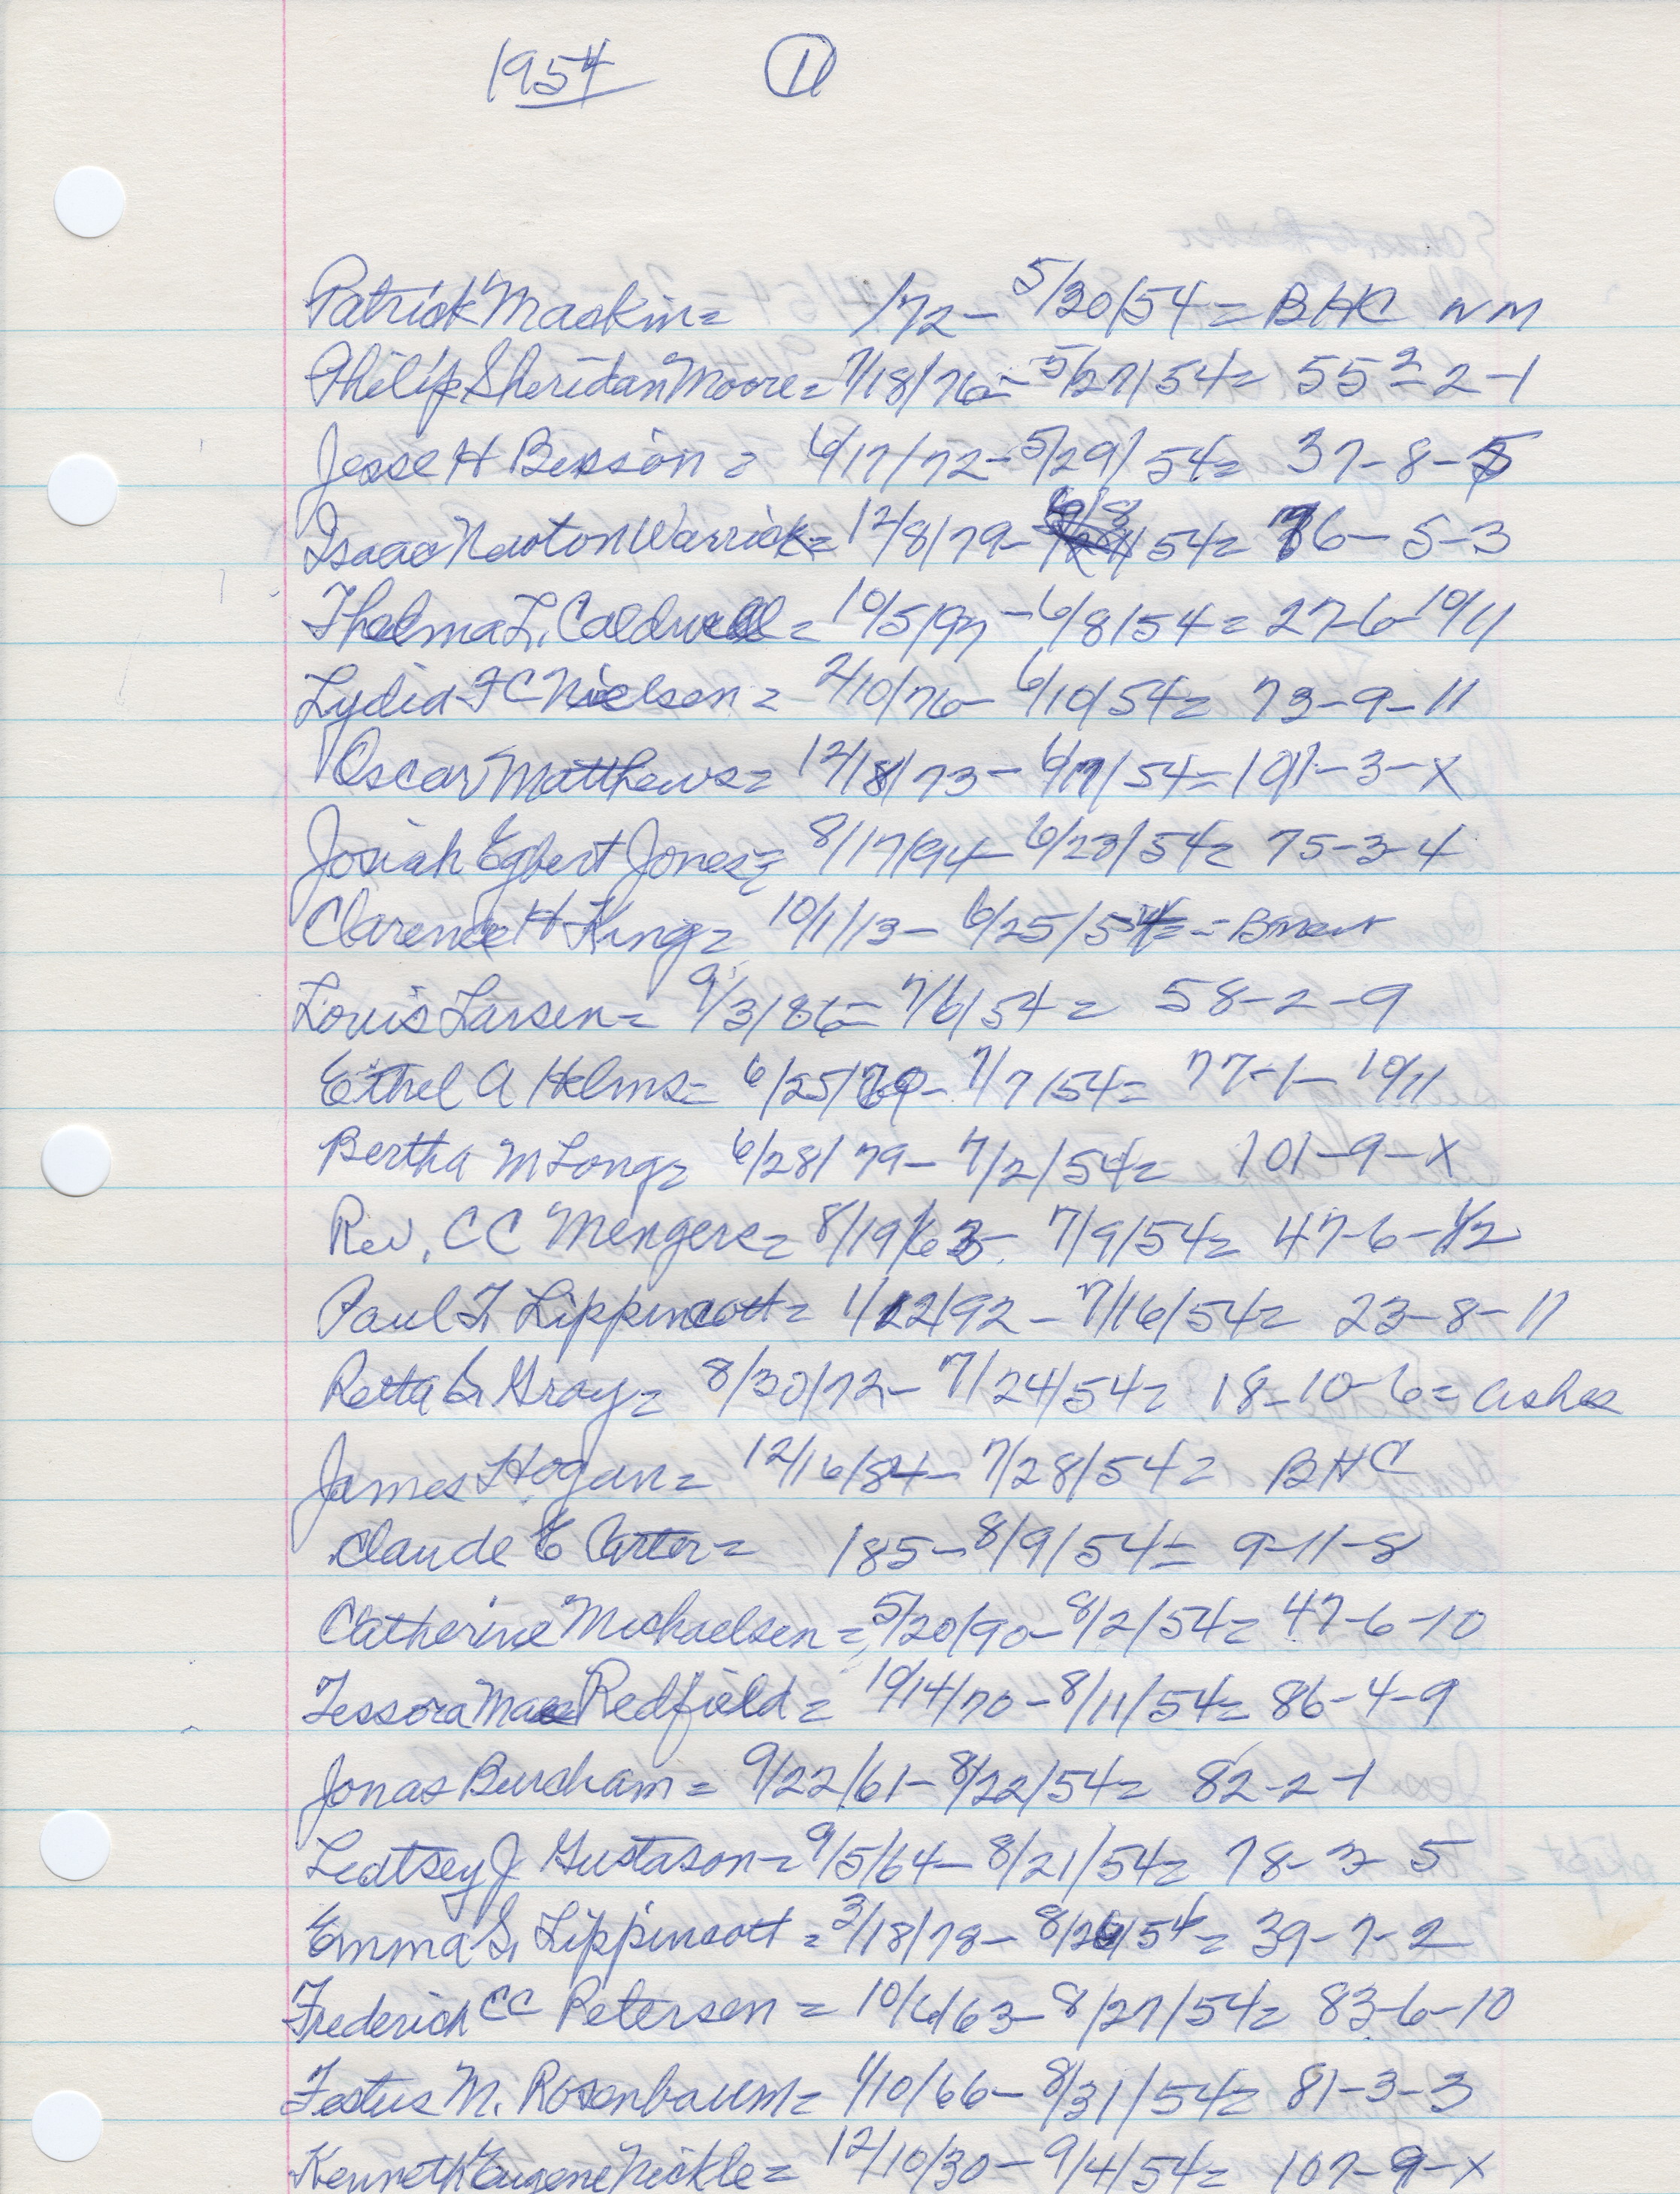 1954 11
Patrick Maskin = /72 - 5/30/54 = BHC NM
Philip Sheridan Moore = 7/18/76 - 5/27/54 = 55 2 - 2 - 1
Jesse H Bisson = 6/17/72 - 5/29/54 = 37 - 8 - 5
Isaac Newton Warrick = 12/8/79 - 54 = 86 - 5 - 3
Thelma L. Caldwell = 10/5/97 - 6/8/54 = 27 - 6 - 10/11
Lydia F C Nielsen = 2/10/76 - 6/10/54 = 73 - 9 - 11
Oscar Matthews = 12/18/73 - 6/17/54 = 101 - 3 - X
Josiah Egbert Jones = 8/17/94 - 6/23/54 = 75 - 3 - 4
Clarence H King = 10/1/13 - 6/25/54 =
Louis Larsen = 9/3/86 = 7/6/54 = 58 - 2 - 9
Ethel A Helms = 6/25/ - 7/7/54 = 77 - 1 - 10/11
Bertha M Long = 6/28/79 - 7/2/54 = 101 - 9 - X
Rev. C C Mengers = 8/19/63 - 7/9/54 = 47 - 6 - 1/2
Paul F. Lippincott = 1/22/92 - 7/16/54 = 23 - 8 - 11
Retta Gray = 8/30/72 - 7/24/54 = 18 - 10 - 6 = ashes
James Hogan = 12/16/84 - 7/28/54 = BHC
Claude E Carter = 185 - 8/9/54 = 9 - 11 - 8
Catherine Michaelsen = 5/20/90 - 8/2/54 = 47 - 6 - 10
Tessora Mae Redfield = 10/14/70 - 8/11/54 = 86 - 4 - 9
Jonas Burcham = 9/22/61 - 8/22/54 = 82 - 2 - 1
J. Gustason = 9/5/64 - 8/21/54 = 78 - 3 - 5
Emma S. Lippincott = 3/18/78 - 8/26/54 = 39 - 7 - 2
Frederich CC Petersen = 10/6/63 - 8/27/54 = 83 - 6 - 10
Festus M. Rosenbaum = 1/10/66 - 8/31/54 = 81 - 3 - 3
Kenneth Eugene Nickle = 12/10/30 - 9/4/54 = 107 - 9 - X